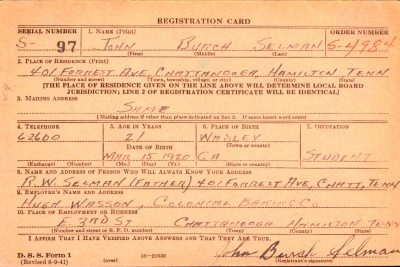 REGISTRATION CARD
SERIAL NUMBER 1. NAME (Print) ORDER NUMBER
S- 97 JOHN BURCH SELMAN S-4984
(First) (Middle) (Last)
2. PLACE OF RESIDENCE (Print)
401 FORREST AVE, CHATTANOOGA, HAMILTON TENN
(Number and street) (Town, township, village, or city) (County) (State)
[THE PLACE OF RESIDENCE GIVEN ON THE LINE ABOVE WILL DETERMINE LOCAL BOARD
JURISDICTION; LINE 2 OF REGISTRATION CERTIFICATE WILL BE IDENTICAL]
3. MAILING ADDRESS
SAME
[Mailing address if other than place indicated on line 2. If same insert word same]
4. TELEPHONE 5. AGE IN YEARS 6. PLACE OF BIRTH 7. OCCUPATION
62600 21 WADLEY
DATE OF BIRTH (Town or county)
MAR 15 1920 GA STUDENT
(Exchange) (Number) (Mo.) (Day) (Yr.) (State or country)
8. NAME AND ADDRESS OF PERSON WHO WILL ALWAYS KNOW YOUR ADDRESS
R.W. SELMAN (FATHER) 401 FORREST AVE, CHATT, TENN
9. EMPLOYER'S NAME AND ADDRESS
HUGH WASSON, COLONIAL BAKING CO
10. PLACE OF EMPLOYMENT OR BUSINESS
E. 3RD ST CHATTANOOGA HAMILTON TENN
(Number and street or R. F. D. number) (Town) (County) (State)
I AFFIRM THAT I HAVE VERIFIED ABOVE ANSWERS AND THAT THEY ARE TRUE.
D. S. S. Form 1 John Burch Selman
(Revised 6-9-41) 16-21630 (Registrant's signature)